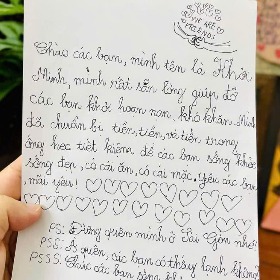 Chào các bạn, mình tên là Khôi
Minh, mình rất sẵn lòng giúp đỡ
các bạn khỏi hoạn nạn khó khăn. Mình
đã chuẩn bị tiền, tiền, và tiền trong
ống heo tiết kiệm để các bạn sống khỏe
sống đẹp, có cái ăn, có cái mặc. Yêu các bạn
yêu!
PS: Đừng quên mình ở Sài Gòn nhé!
PSS: À quên, các bạn có thấy lạnh không
PSSS: Chúc các bạn sống